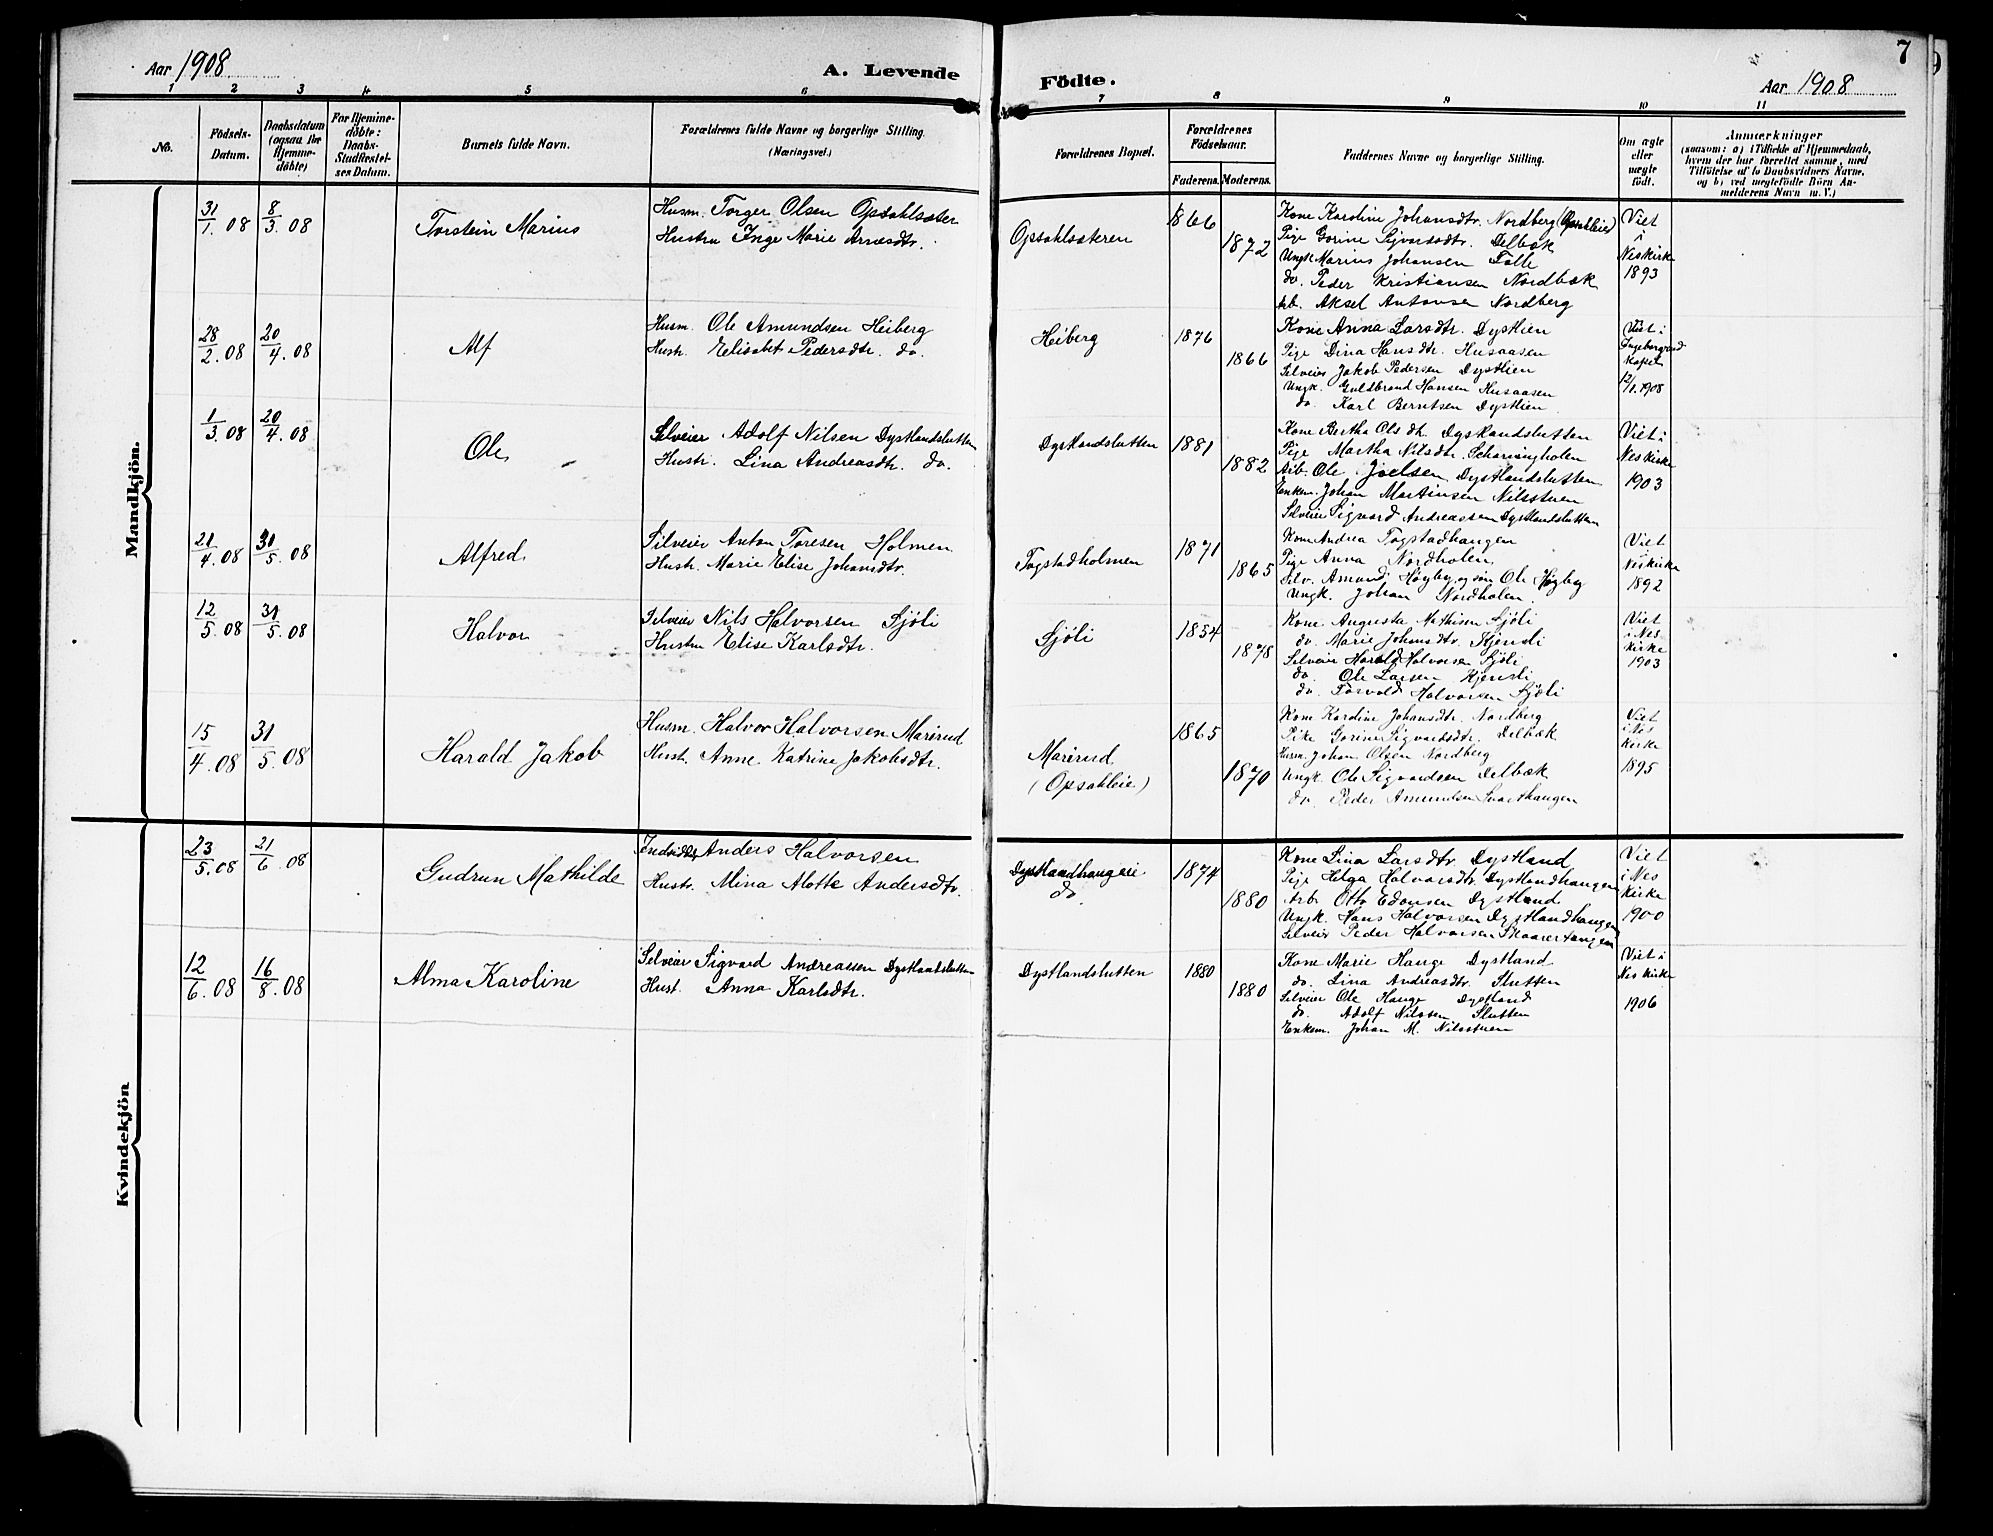 Aar 1908
A. Levende Födte.
Aar 1908
7
1 2 3 4 5 6 7 8 9 10 11
No.
Födsels-Datum.
Daabsdatum (ogsaa for Hjemmedøbte)
For Hjemmedøbte: Daabs-Stadfæstelses Datum.
Barnets fulde Navn.
Forældrenes fulde Navne og borgerlige Stilling. (Næringsvei.)
Forældrenes Bopæl.
Forældrenes Födselsaar.
Faderens. Moderens.
Faddernes Navne og borgerlige Stilling.
Om ægte eller uægte født.
Anmærkninger
(saasom: a) i Tilfælde af Hjemmedaab,
hvem der har forrettet samme, med
Tilföielse af to Daabsvidners Navne,
og b) ved uægtefödte Börn An-
melderens Navn m. V.)
Mandkjön.
31/1. 08 8/3 08
Torstein Marius
Husm. Torger Olsen Opsahlsæter
Hustru Inge Marie Arnesdtr.
Opsahlsæteren
1866
1872
Kone Karoline Johansdtr. Nordberg (Opsahleie)
Pige Gorine Sigvarsdtr. Delbæk
Ungk Marius Johansen Falle
do. Peder Kristiansen Nordbæk
Arb. Aksel Antonsen Nordberg
Viet
i
Neskirke
1893
28/2. 08 20/4. 08
Alf
Husm. Ole Amundsen Heiberg
Hustr. Elisabet Pedersdtr. do.
Heiberg
1876
1866
Kone Anna Larsdtr. Dystlien
Pige Dina Hansdtr. Husaasen
Selveier Jakob Pedersen Dystlien
Ungk. Guldbrand Hansen Husaasen
do Karl Berntsen Dystlien
Viet i
Kapel
12/1. 1908
1/3. 08 20/4. 08
Ole
Selveier Adolf Nilsen Dystlandslutten
Hustr. Lina Andreasdtr. do.
Dystlandslutten
1881
1882
Kone Bertha Olsdtr. Dystlandslutten
Pige Martha Nilsdtr. Scharningholen
Arb. Ole Joelsen Dystlandslutten
Enkem. Johan Martinsen Nilsstuen
Selveier Sigvard Andreassen Dystlandslutten
Viet i
Neskirke
1903
21/4. 08 31/5. 08
Alfred
Selveier Anton Toresen Holmen
Hustr. Marie Elise Johansdtr.
Togstadholmen
1871
1865
Kone Andrea Togstadhaugen
Pige Anna Nordholen
Selv. Amund Høgby og søn Ole Høgby
Ungk. Johan Nordholen
Viet
i
Neskirke
1892
12/5. 08 31/5. 08
Halvor
Selveier Nils Halvorsen Sjöli
Hustru Elise Karlsdtr.
Sjöli
1854
1878
Kone Augusta Mathisen Sjöli
do. Marie Johansdtr. Kjensli
Selveier Harald Halvorsen Sjöli
do. Ole Larsen Kjensli
do. Torvald Halvorsen Sjöli
Viet
i Nes
Kirke
1903
15/4. 08 31/5. 08
Harald Jakob
Husm. Halvor Halvorsen Marirud
Hustr. Anne Katrine Jakobsdtr.
Marirud
(Opsahleie)
1865
1870
Kone Karoline Johansdtr. Nordberg
Pike Gorine Sigvardsdtr. Delbæk
Husm. Johan Olsen Nordberg
Ungk. Ole Sigvardsen Delbæk
do. Peder Amundsen Svarthaugen
Viet
i Nes
Kirke
1895
Kvindekjön
23/5. 08 21/6. 08
Gudrun Mathilde
Anders Halvorsen
Hustr. Mina Alotte Andersdtr.
Dystlandhangeie
do.
1874
1880
Kone Lina Larsdtr. Dystland
Pige Helga Halvorsdtr. Dystlandhangen
Arb. Otto Edonsen Dystland
Ungk. Hans Halvorsen Dystlandhangen
Selveier Peder Halvorsen Skaarertangen
Viet
i Nes
Kirke
1900
12/6. 08 16/8. 08
Alma Karoline
Selveier Sigvard Andreassen Dystlandslutten
Hust. Anna Karlsdtr.
Dystlandslutten
1880
1880
Kone Marie Hauge Dystland
do. Lina Andreasdtr. Slutten
Selveier Ole Hauge Dystland
do. Adolf Nilssen Slutten
Enkem. Johan M. Nilsstuen
Viet i
Nes Kirke
1906